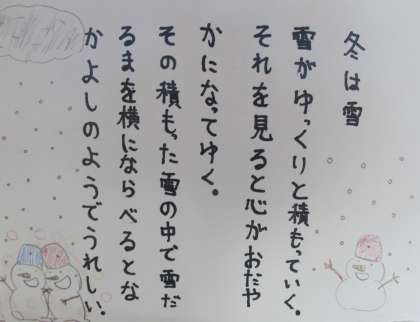 冬は雪
雪がゆっくりと積もっていく。
それを見ると心がおだや
かになってゆく。
その積もった雪の中で雪だ
るまを横にならべるとな
かよしのようでうれしい。